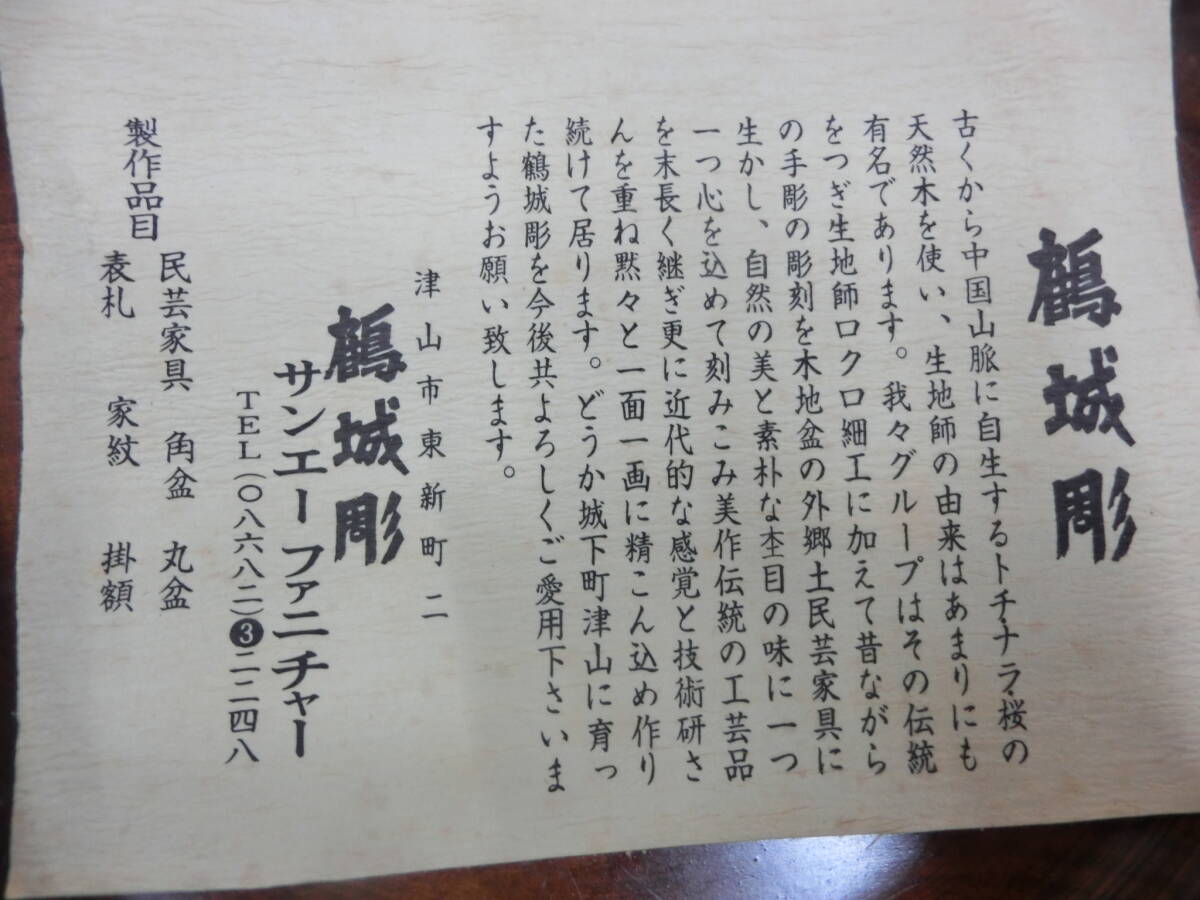 鶴城彫
古くから中国山脈に自生するトチ・ナラ・桜の
天然木を使い、生地師の由来はあまりにも
有名であります。我々グループはその伝統
をつぎ生地師ロクロ細工に加えて昔ながら
の手彫の彫刻を木地盆の外郷土民芸家具に
生かし、自然の美と素朴な杢目の味に一つ
一つ心を込めて刻みこみ美作伝統の工芸品
を末長く継ぎ更に近代的な感覚と技術研さ
んを重ね黙々と一面一画に精こん込め作り
続けて居ります。どうか城下町津山に育っ
た鶴城彫を今後共よろしくご愛用下さいま
すようお願い致します。
津山市東新町二
鶴城彫
サンエーファニチャー
TEL(〇八六八二)❸二二四八
製作品目
民芸家具 角盆 丸盆
表札 家紋 掛額